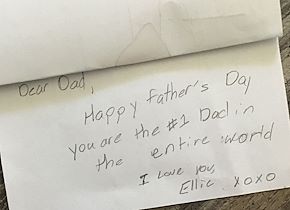 Dear Dad,
Happy Father's Day
you are the #1 Dad in
the entire world
I Love You,
Ellie xoxo